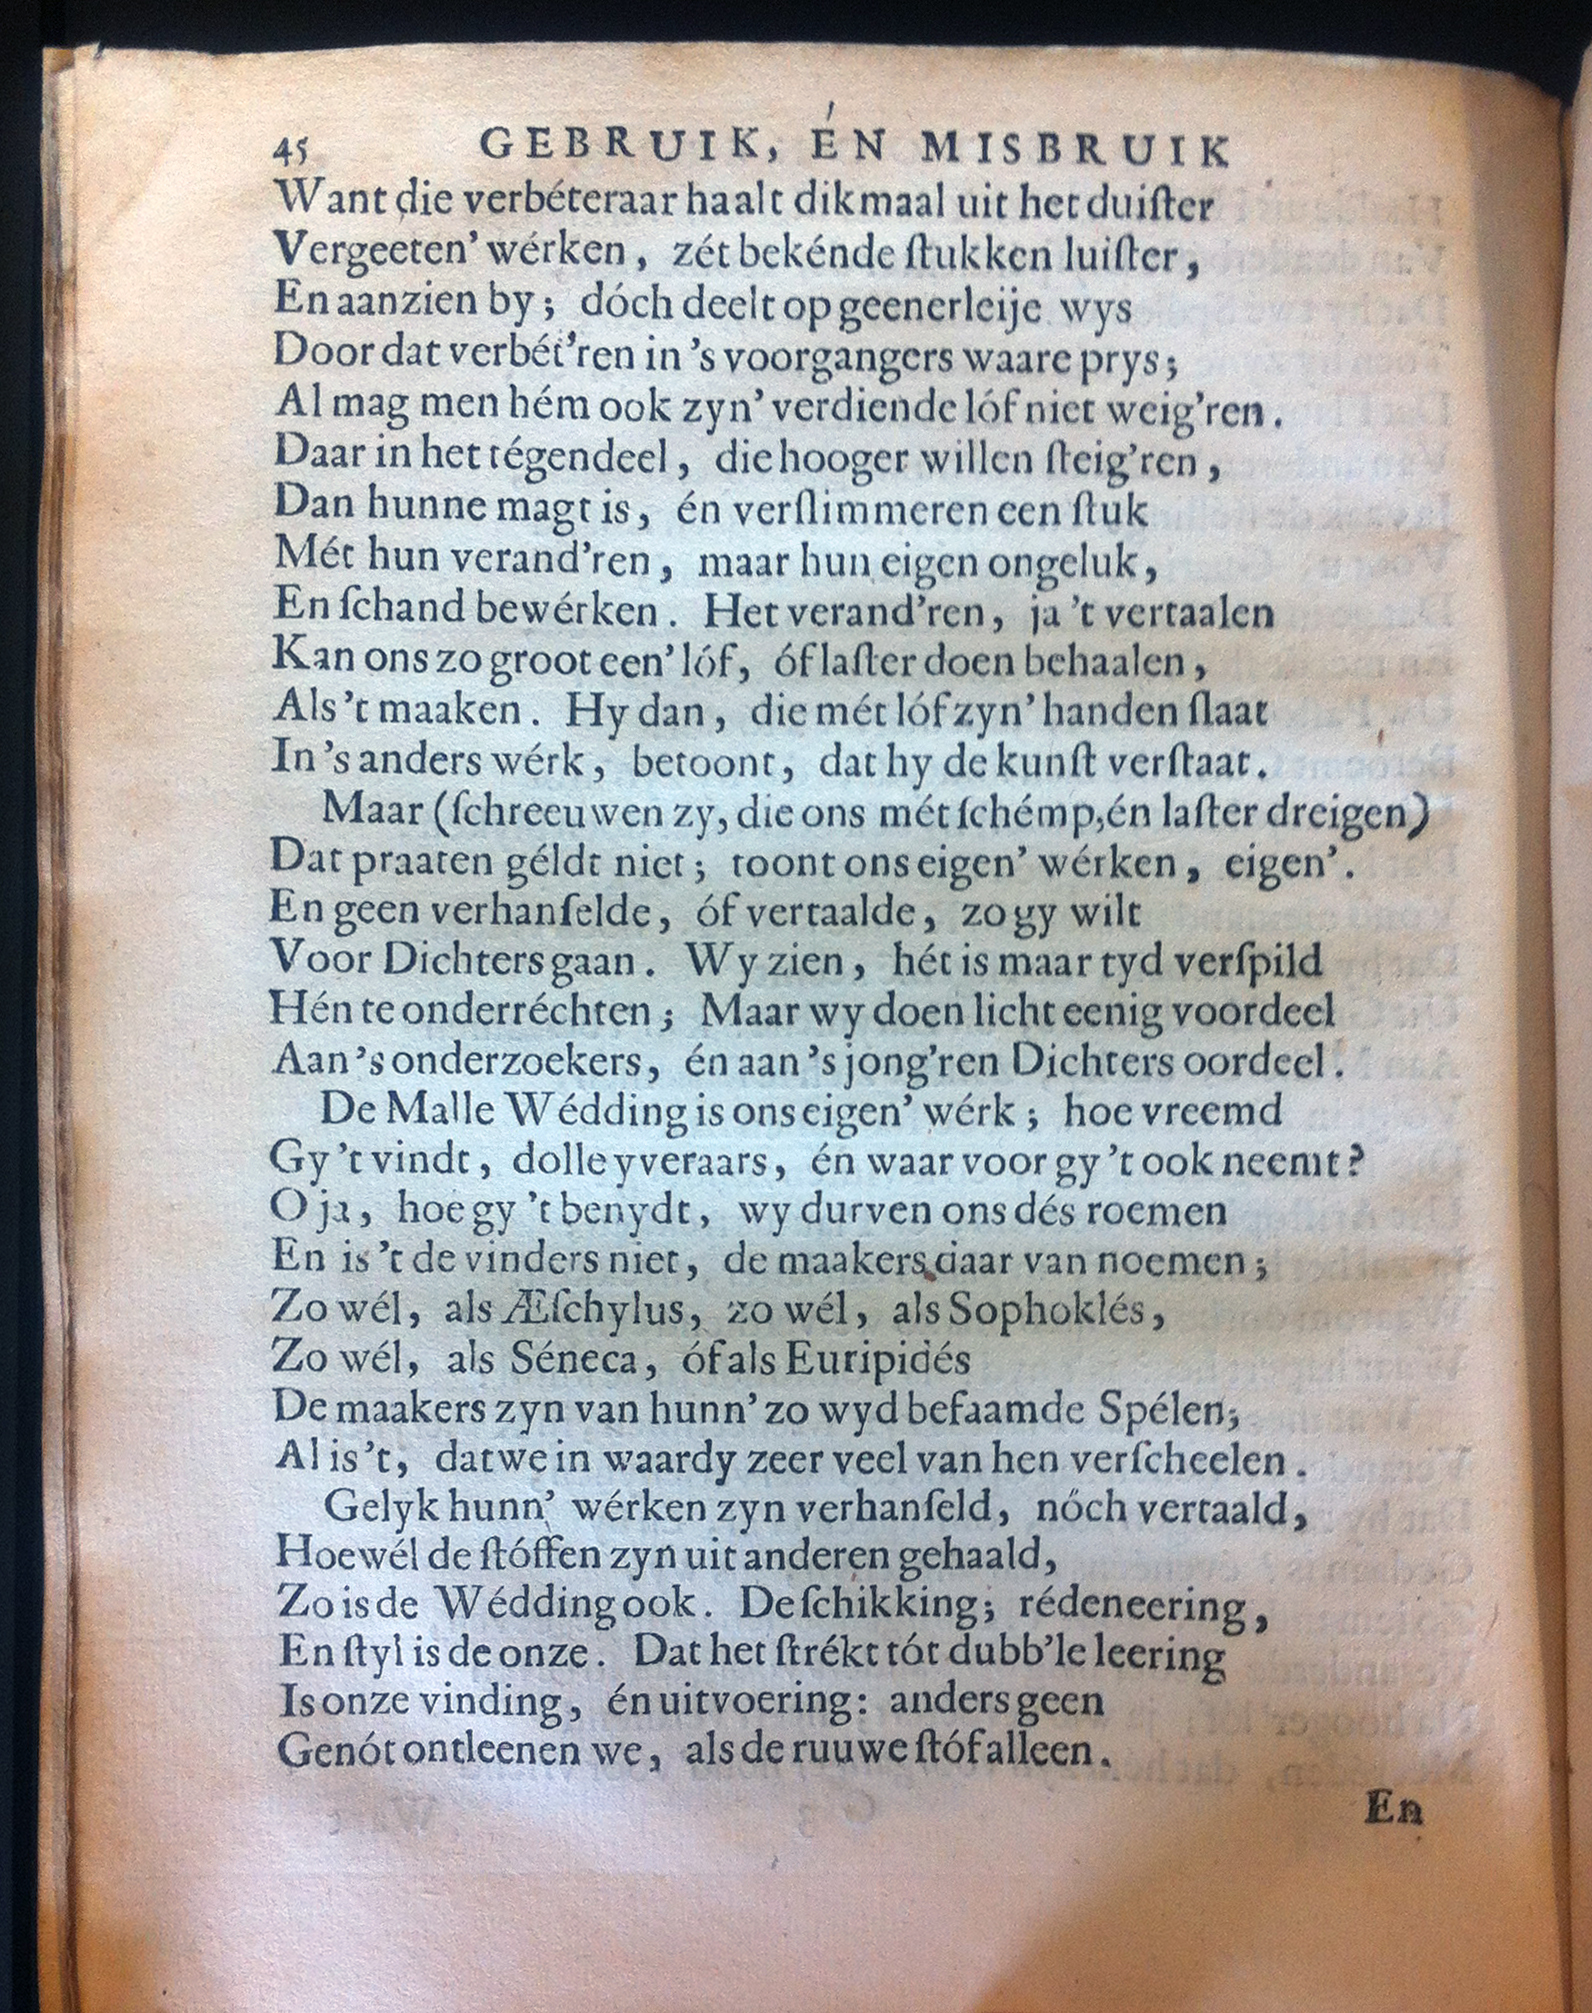 45 GEBRUIK, ÉN MISBRUIK
Want die verbéteraar haalt dikmaal uit het duiſter
Vergeeten’ wérken, zét bekénde ſtukken luiſter,
En aanzien by; dóch deelt op geenerleije wys
Door dat verbét’ren in ’s voorgangers waare prys;
Al mag men hém ook zyn’ verdiende lóf niet weig’ren.
Daar in het tégendeel, die hooger willen ſteig’ren,
Dan hunne magt is, én verſlimmeren een ſtuk
Mét hun verand’ren, maar hun eigen ongeluk,
En ſchand bewérken. Het verand’ren, ja ’t vertaalen
Kan ons zo groot een’ lóf, óf laſter doen behaalen,
Als ’t maaken. Hy dan, die mét lóf zyn’ handen ſlaat
In ’s anders wérk, betoont, dat hy de kunſt verſtaat.
Maar (ſchreeuwen zy, die ons mét ſchémp, én laſter dreigen)
Dat praaten géldt niet; toont ons eigen’ wérken, eigen’.
En geen verhanſelde, óf vertaalde, zo gy wilt
Voor Dichters gaan. Wy zien, hét is maar tyd verſpild
Hén te onderréchten; Maar wy doen licht eenig voordeel
Aan ’s onderzoekers, én aan ’s jong’ren Dichters oordeel.
De Malle Wédding is ons eigen’ wérk; hoe vreemd
Gy ’t vindt, dolle yveraars, én waar voor gy ’t ook neemt?
O ja, hoe gy ’t benydt, wy durven ons dés roemen
En is ’t de vinders niet, de maakers daar van noemen;
Zo wél, als Æſchylus, zo wél, als Sophoklés,
Zo wél, als Séneca, óf als Euripidés
De maakers zyn van hunn’ zo wyd befaamde Spélen;
Al is ’t, dat we in waardy zeer veel van hen verſcheelen.
Gelyk hunn’ wérken zyn verhanſeld, nóch vertaald,
Hoewél de ſtóffen zyn uit anderen gehaald,
Zo is de Wédding ook. De ſchikking; rédeneering,
En ſtyl is de onze. Dat het ſtrékt tót dubb’le leering
Is onze vinding, én uitvoering: anders geen
Genót ontleenen we, als de ruuwe ſtóf alleen.
En